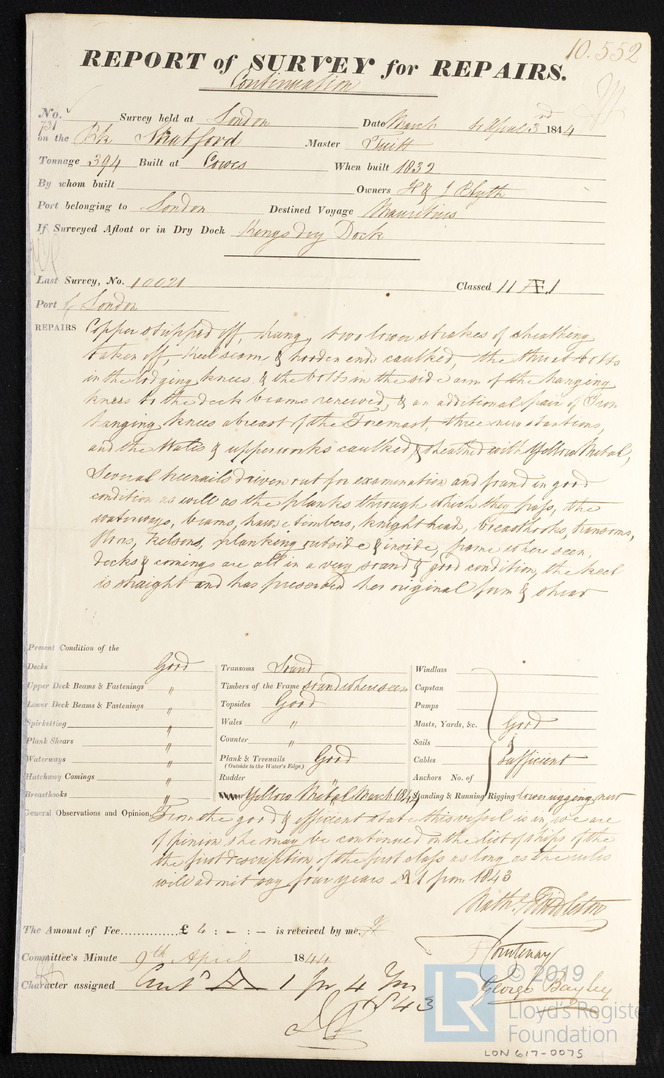 10.552
REPORT of SURVEY for REPAIRS.
Continuation
No. 731 Survey held at London Date March to April 3rd 1844
on the Bk Stratford Master
Tonnage 394 Built at Cowes When built 1832
By whom built Owners H & J Blyth
Port belonging to London Destined Voyage Mauritius
If Surveyed Afloat or in Dry Dock Kings dry Dock
Last Survey, No. 10021 Classed 11 Æ 1
Port of London
REPAIRS Copper stripped off, hung, two lower strakes of sheathing
taken off, keel seam & hooden ends caulked, the throat bolts
in the lodging knees, & the bolts in the side arm of the hanging
knees to the deck beams renewed, & an additional pair of Iron
hanging knees abreast of the Foremast three new stantions,
and the Wales & upperworks caulked & sheathed with Yellow Metal,
Several treenails driven out for examination and found in good
condition as well as the planks through which they pass, the
waterways, beams, hawse timbers, knight head, breasthooks, transoms,
Kelsons, planking outside & inside, frame where seen,
decks & comings are all in a very sound & good condition, the keel
is straight and has preserved her original form & shear
Present Condition of the
Decks Good Transoms Sound Windlass
Upper Deck Beams & Fastenings " Timbers of the Frame sound where seen Capstan
Lower Deck Beams & Fastenings " Topsides Good Pumps
Spirketting " Wales " Masts, Yards, &c. Good
Plank Shears " Counter " Sails &
Waterways " Plank & Treenails Good Cables sufficient
(Outside to the Water's Edge)
Hatchway Comings " Rudder " Anchors No. of
Breasthooks " Yellow Metal March 1844 Standing & Running Rigging lower rigging new
General Observations and Opinion, From the good & efficient state this vessel is in we are
of opinion she may be continued on the list of ships of the
the first description of the first class as long as the rules
will admit say four years A 1 from 1843
Nathl Middleton
The Amount of Fee............£ 4 : - : - is received by me,
Courtenay
Committee's Minute 9th April 1844
George Bayley
Character assigned Contd A 1 for 4 Yrs
fm 1843
© 2019
LR
Lloyd's Register
Foundation
LON 617-0075